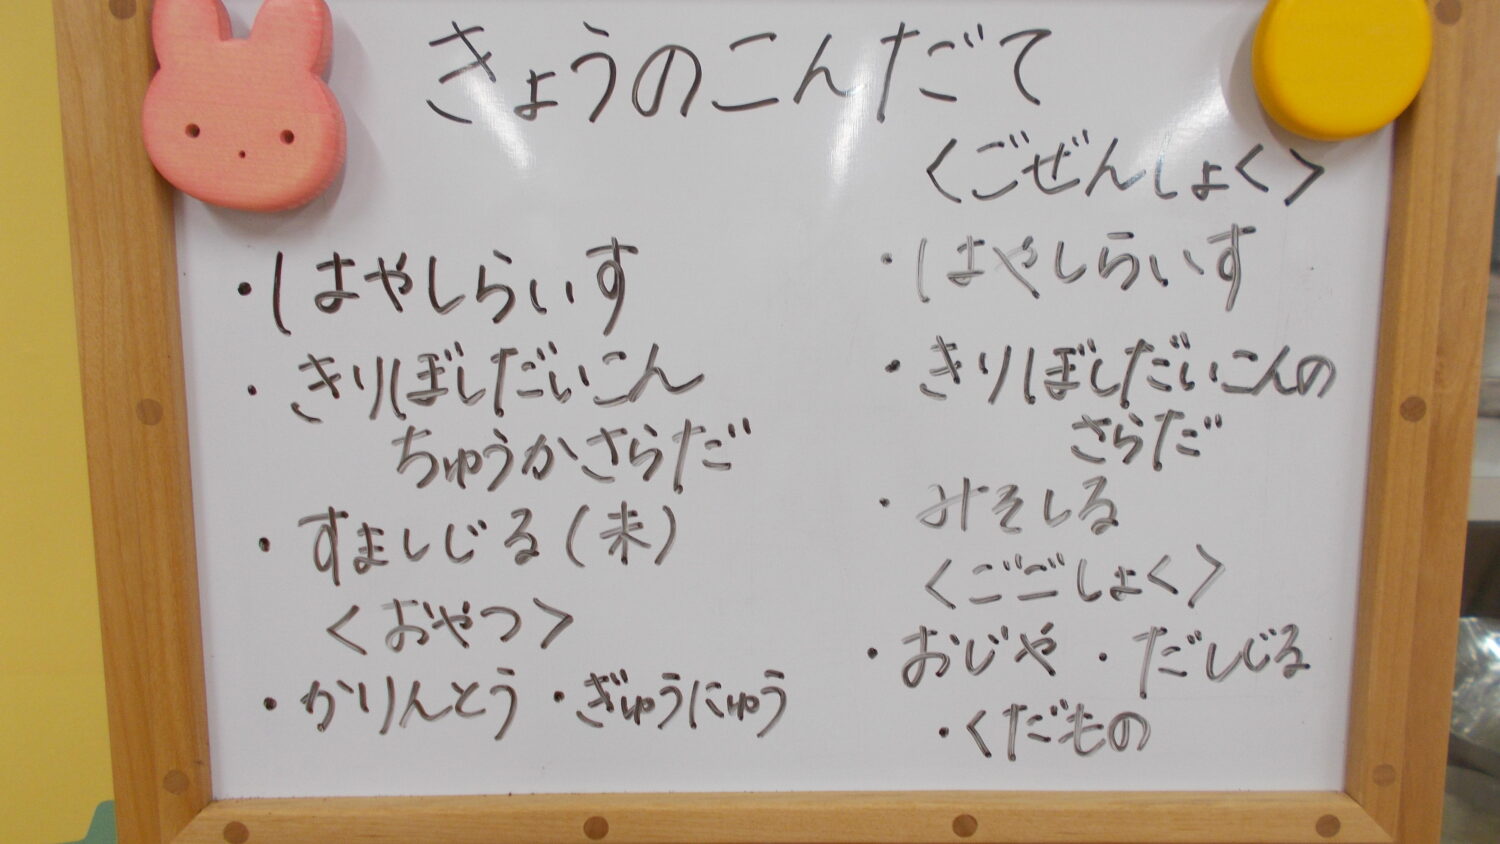 きょうのこんだて
・はやしらいす
・きりぼしだいこん
ちゅうかさらだ
・すましじる(未)
<おやつ>
・かりんとう・ぎゅうにゅう
<ごぜんしょく>
・はやしらいす
・きりぼしだいこんの
さらだ
・みそしる
<ごごしょく>
・おじや・だしじる
・くだもの